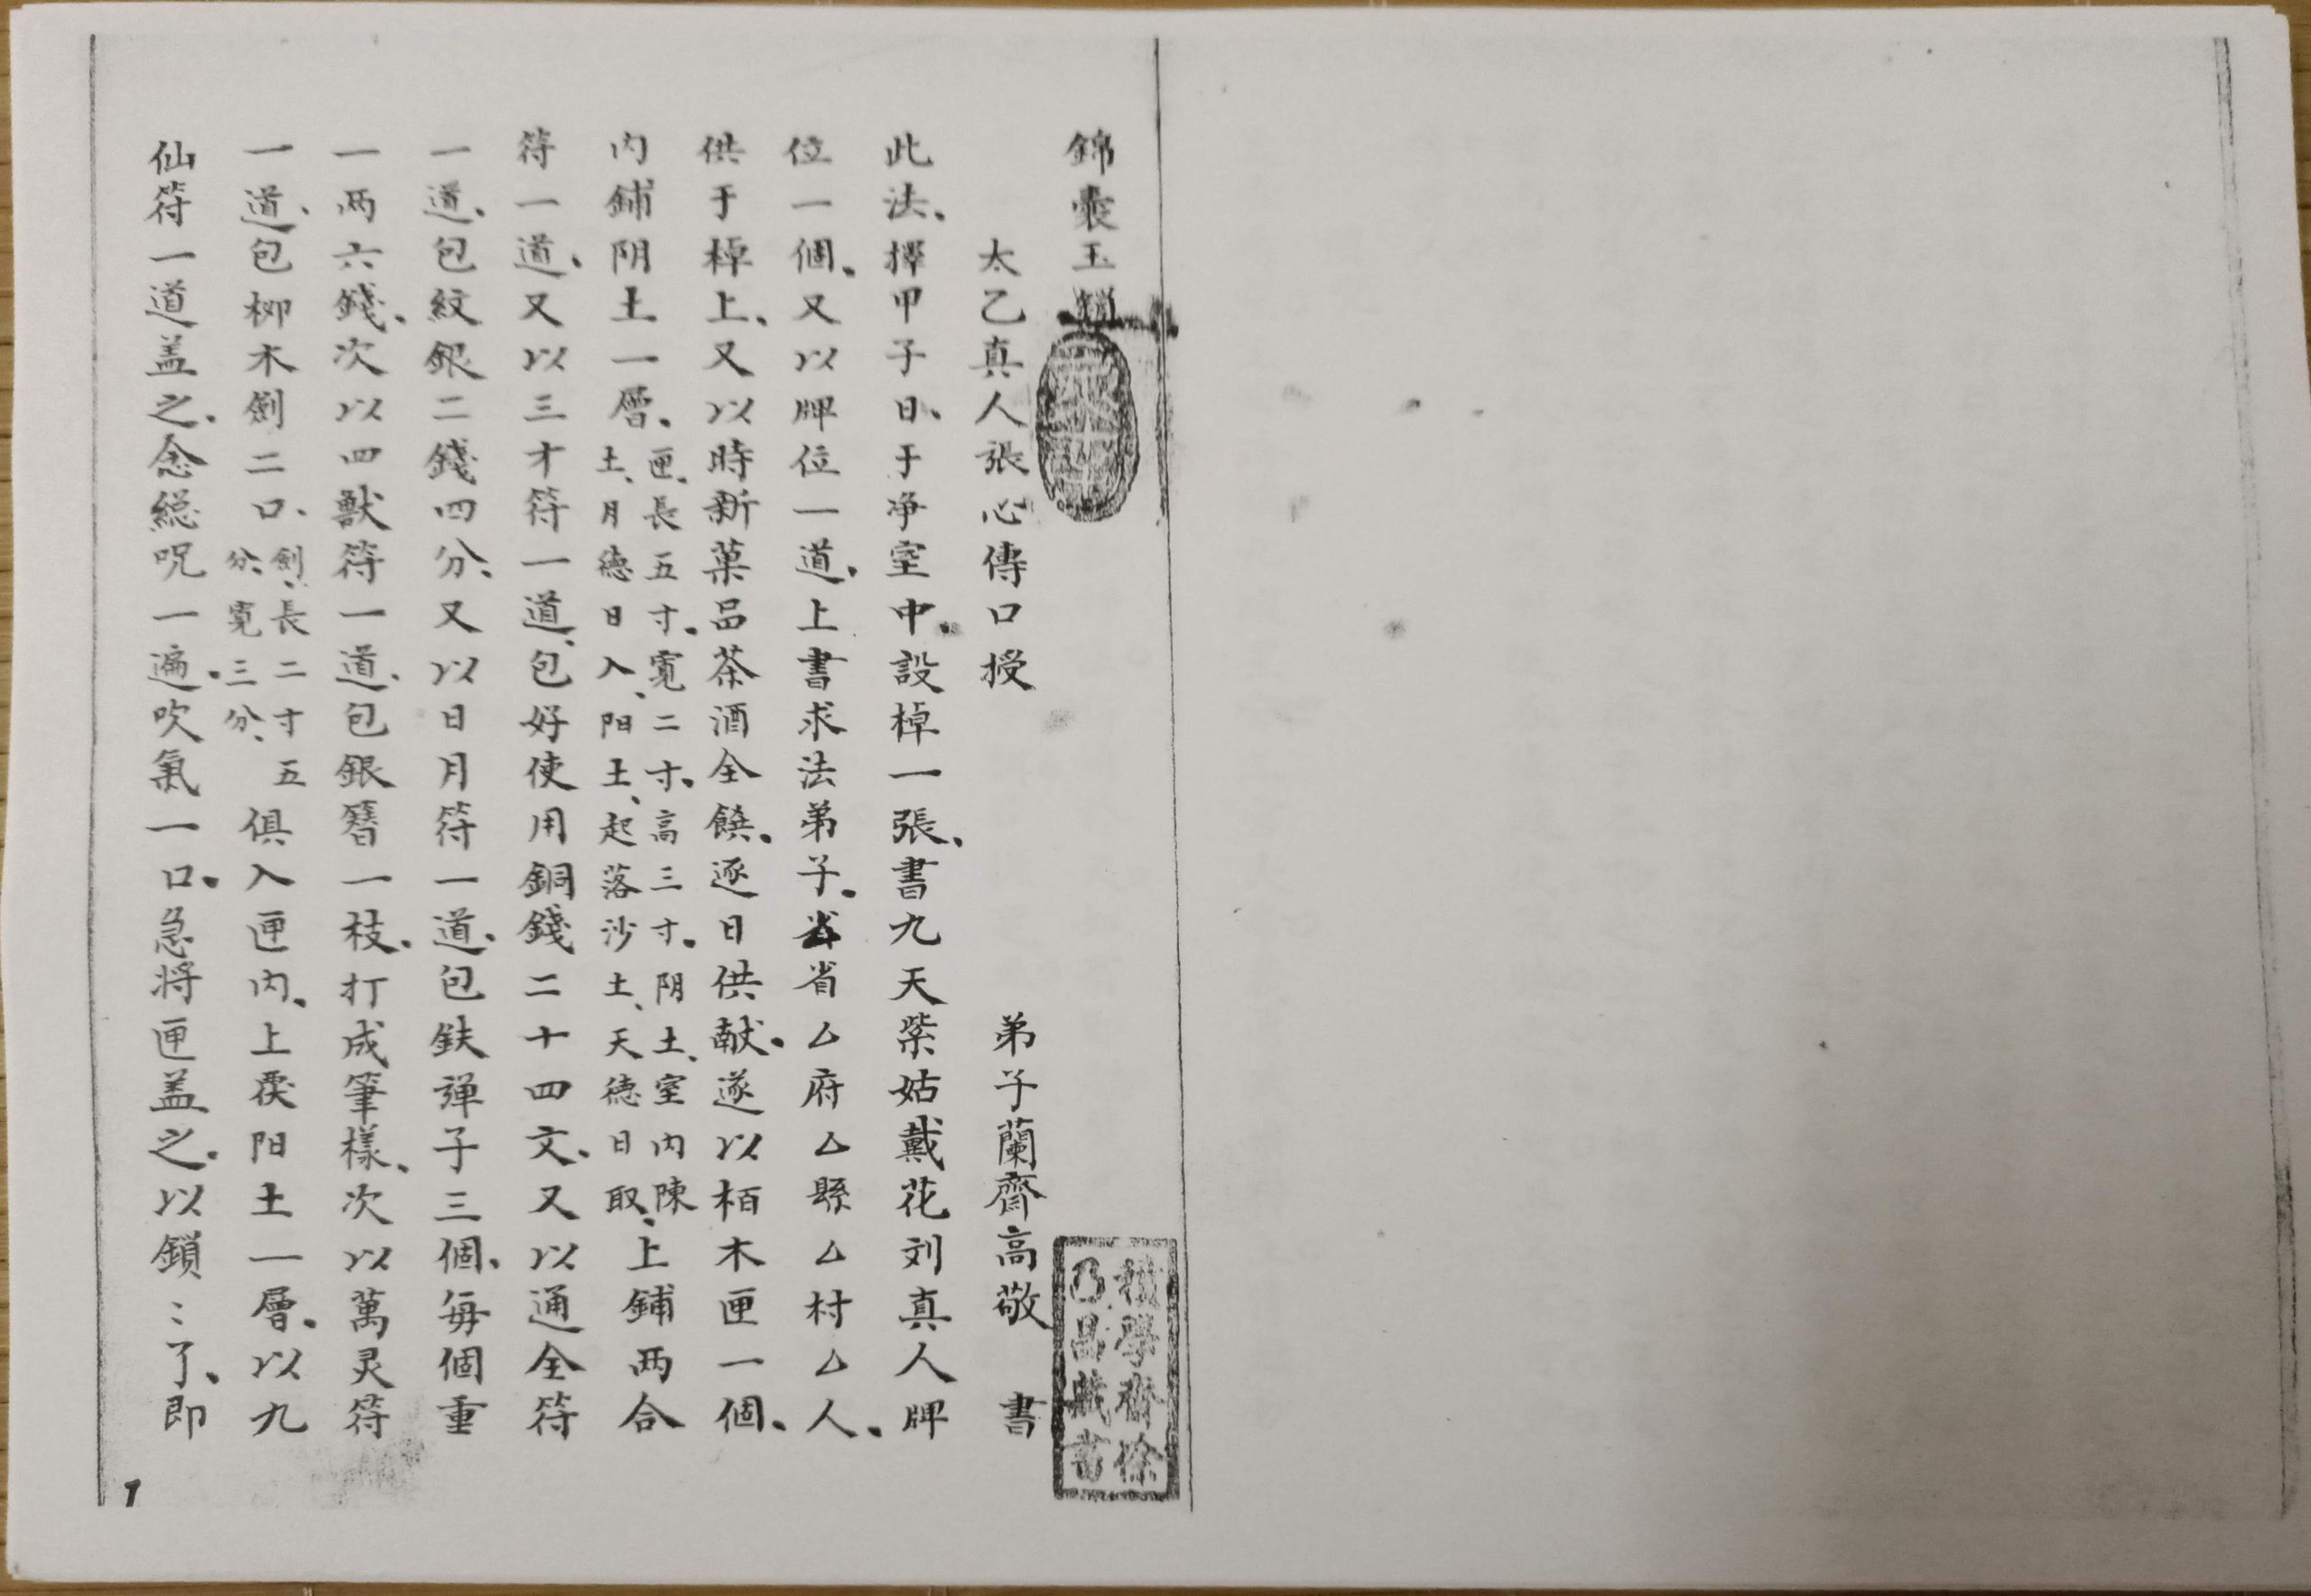 錦囊玉鎖
太乙真人張心傳口授　弟子蘭齊高敬　書
此法、擇甲子日、于净室中、設棹一張、書九天紫姑戴花刘真人牌
位一個、又以牌位一道、上書求法弟子、省厶府厶縣厶村厶人、
供于棹上、又以時新菓品茶酒全饌、逐日供献、遂以栢木匣一個、
内鋪阴土一層、匣、長五寸、寬二寸、高三寸、阴土、室内陳土、月德日入、阳土、起落沙土、天德日取、上鋪两合
符一道、又以三才符一道、包好使用銅錢二十四文、又以通全符
一道、包紋銀二錢四分、又以日月符一道、包鉄弹子三個、每個重
一两六錢、次以四獸符一道、包銀簪一枝、打成筆樣、次以萬灵符
一道、包柳木劍二口、劍、長二寸五分、寬三分、俱入匣内、上覆阳土一層、以九
仙符一道盖之、念総呪一遍、吹氣一口、急将匣盖之、以鎖〻了、即
積學齋徐
乃昌藏書
1